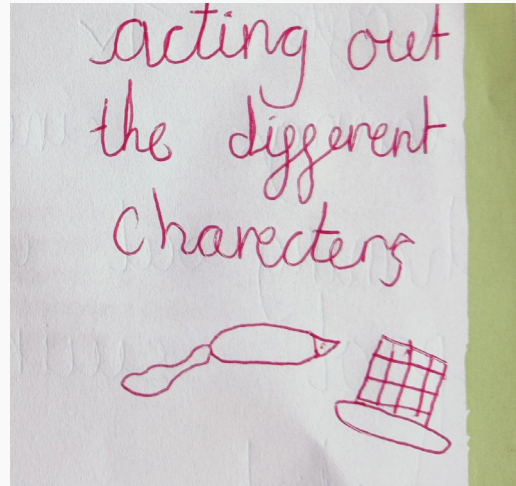 acting out
the different
charecters